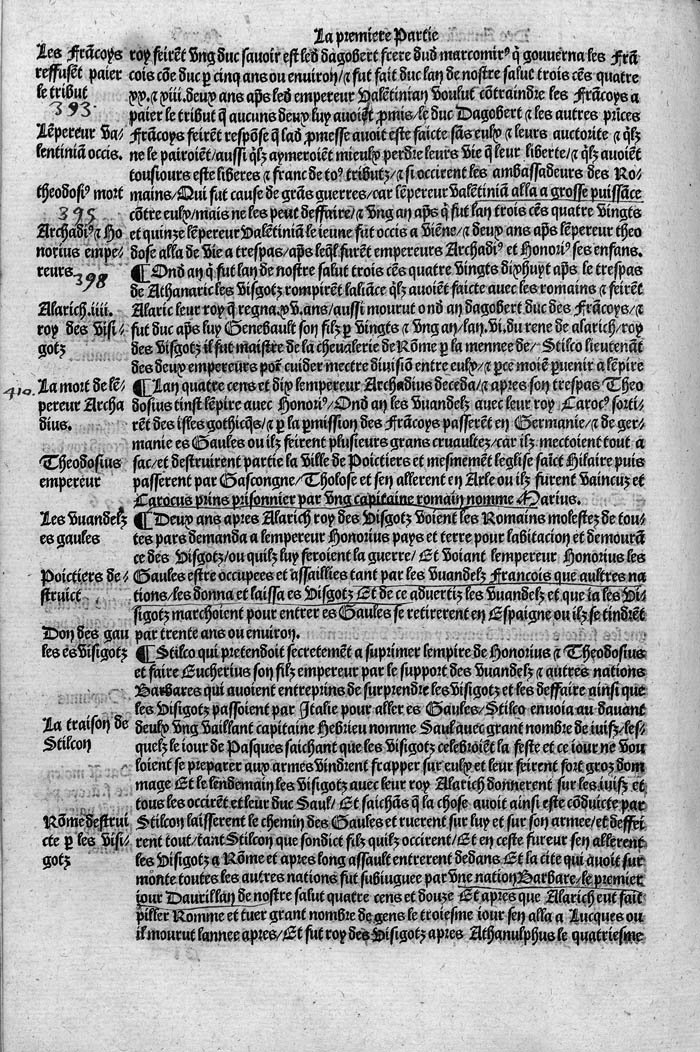 La premiere Partie
Les Frãcoys
reffusẽt paier
le tribut
393.
Lẽpereur Va-
lentiniã occis.
theodosiꝰ mort
395
Archadiꝰ ⁊ Ho
norius empe-
reurs.
398
Alarich.iiii.
roy des visi-
gotz
410.
La mort de lẽ-
pereur Archa
dius.
Theodosius
empereur
Les vuandelz
es gaules
Poictiers de-
struict
Don des gau
les es visigotz
La traison de
Stilcon
Rõme destrui
cte p les visi-
gotz
roy feirẽt vng duc savoir est led dagobert frere dud marcomirꝰ q̃ gouverna les Frã
cois cõe duc p cinq ans ou enuiron/⁊ fut fait duc lan de nostre salut trois cẽs quatre
xx.⁊ xiii.deux ans ap̃s led empereur Valẽtinian voulut cõtraindre les Frãcoys a
paier le tribut q̃ aucuns deulx luy auoiẽt p̃mis/le duc Dagobert ⁊ les autres prĩces
Frãcoys feirẽt respõse q̃ lad p̃messe avoit este faicte sãs eulx ⁊ leurs auctorite ⁊ q̃lz
ne le pairoiẽt/aussi q̃lz aymeroiẽt mieulx perdre leurs vie q̃ leur liberte/⁊ q̃lz auoiẽt
tousiours este liberes ⁊ franc de toꝰ tributz/⁊ si occirent les ambassadeurs des Ro-
mains/Qui fut cause de grãs guerres/car lẽpereur valẽtiniã alla a grosse puissãce
cõtre eulx/mais ne les peut deffaire/⁊ vng an ap̃s q̃ fut lan trois cẽs quatre vingts
et quinze lẽpereur Valẽtiniã le ieune fut occis a viẽne/⁊ deux ans ap̃s lẽpereur theo
dose alla de vie a trespas/ap̃s leq̃l furẽt empereurs Archadiꝰ et Honoriꝰ ses enfans.
¶ Ond an q̃ fut lan de nostre salut trois cẽs quatre vingts dixhuyt ap̃s le trespas
de Athanaric les Visgotz rompirẽt laliãce q̃lz auoiẽt faicte avec les romains ⁊ feirẽt
Alaric leur roy q̃ regna.xv.ans/aussi mourut ond an dagobert duc des Frãcoys/⁊
fut duc ap̃s luy Genebault son filz p vingts ⁊ vng an/lan.vi.du rene de alarich/roy
des visgotz il fut maistre de la chevalerie de Rõme p la mennee de/ Stilco lieutenãt
des deux empereurs poũ cuider mectre divisiõ entre eulx/⁊ p ce moiẽ p̃uenir a lẽpire
¶ Lan quatre cens et dix lempereur Archadius deceda/⁊ apres son trespas Theo
dosius tinst lẽpire avec Honoriꝰ/Ond an les vuandelz avec leur roy Carocꝰ sorti-
rẽt des isles gothicq̃s/⁊ p la p̃mission des Frãcoys passerẽt en Germanie/⁊ de ger-
manie es Gaules ou ilz feirent plusieurs grans cruaultez/car ilz mectoient tout a
sac/et destruirent partie la ville de Poictiers et mesmemẽt leglise saĩct Hilaire puis
passerent par Gascongne/Tholose et sen allerent en Arle ou ilz furent vaincuz et
Carocus prins prisonnier par vng capitaine romain nomme Marius.
¶ Deux ans apres Alarich roy des Visgotz voient les Romains molestez de tou-
tes pars demanda a lempereur Honorius pays et terre pour labitacion et demourã
ce des Visgotz/ou quilz luy feroient la guerre/ Et voiant lempereur Honorius les
Gaules estre occupees et assaillies tant par les vuandelz Francois que aultres na
tions/les donna et laissa es Visgotz Et de ce advertiz les vuandelz et que ia les Vi-
sigotz marchoient pour entrer es Gaules se retirerent en Espaigne ou ilz se tindrẽt
par trente ans ou enuiron.
¶ Stilco qui pretendoit secretemẽt a suprimer lempire de Honorius ⁊ Theodosius
et faire Eucherius son filz empereur par le support des vuandelz ⁊ autres nations
Barbares qui auoient entreprins de surprendre les visigotz et les deffaire ainsi que
les Visigotz passoient par Italie pour aller es Gaules/ Stilco enuoia au dauant
deulx vng vaillant capitaine Hebrieu nomme Saul avec grant nombre de iuifz/les-
quelz le iour de Pasques saichant que les Visigotz celebroiẽt la feste et ce iour ne vou
loient se preparer aux armes vindrent frapper sur eulx et leur feirent fort groz dom
mage Et le lendemain les Visigotz avec leur roy Alarich donnerent sur les iuifz et
tous les occirẽt et leur duc Saul/ Et saichãs q̃ la chose auoit ainsi este cõduicte par
Stilcon laisserent le chemin des Gaules et ruerent sur luy et sur son armee/et deffei
rent tout/tant Stilcon que sondict filz quilz occirent/Et en ceste fureur sen allerent
les Visigotz a Rõme et apres long assault entrerent dedans Et la cite qui auoit sur
mõte toutes les autres nations fut subiuguee par vne nation Barbare/le premier
iour Daurillan de nostre salut quatre cens et douze Et apres que Alarich eut fait
piller Romme et tuer grant nombre de gens le troiesme iour sen alla a Lucques ou
il mourut lannee apres/Et fut roy des Visigotz apres Athanulphus le quatriesme